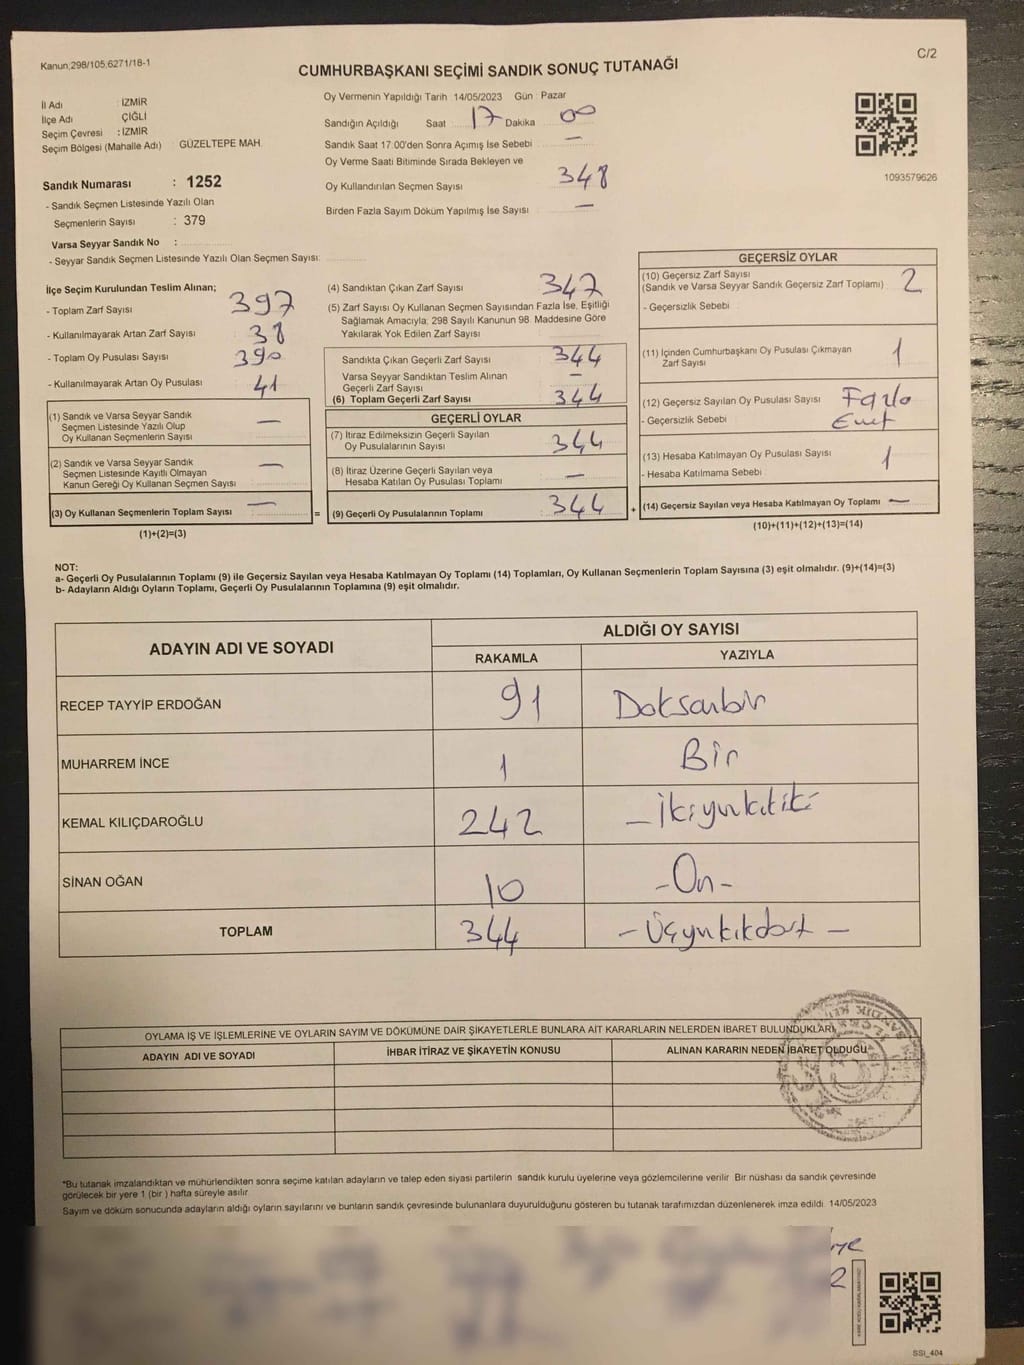 Kanun;298/105;6271/18-1
C/2
CUMHURBAŞKANI SEÇİMİ SANDIK SONUÇ TUTANAĞI
İl Adı : İZMİR
İlçe Adı : ÇİĞLİ
Seçim Çevresi : İZMİR
Seçim Bölgesi (Mahalle Adı) : GÜZELTEPE MAH.
Sandık Numarası : 1252
- Sandık Seçmen Listesinde Yazılı Olan
Seçmenlerin Sayısı : 379
Varsa Seyyar Sandık No :
- Seyyar Sandık Seçmen Listesinde Yazılı Olan Seçmen Sayısı:
Oy Vermenin Yapıldığı Tarih 14/05/2023 Gün : Pazar
Sandığın Açıldığı Saat 17 Dakika 00
Sandık Saat 17.00'den Sonra Açımış İse Sebebi —
Oy Verme Saati Bitiminde Sırada Bekleyen ve
Oy Kullandırılan Seçmen Sayısı 348
Birden Fazla Sayım Döküm Yapılmış İse Sayısı —
1093579626
İlçe Seçim Kurulundan Teslim Alınan;
- Toplam Zarf Sayısı : 397
- Kullanılmayarak Artan Zarf Sayısı : 38
- Toplam Oy Pusulası Sayısı : 390
- Kullanılmayarak Artan Oy Pusulası : 41
(1) Sandık ve Varsa Seyyar Sandık
Seçmen Listesinde Yazılı Olup
Oy Kullanan Seçmenlerin Sayısı —
(2) Sandık ve Varsa Seyyar Sandık
Seçmen Listesinde Kayıtlı Olmayan
Kanun Gereği Oy Kullanan Seçmen Sayısı —
(3) Oy Kullanan Seçmenlerin Toplam Sayısı : —
(1)+(2)=(3)
=
(4) Sandıktan Çıkan Zarf Sayısı : 347
(5) Zarf Sayısı Oy Kullanan Seçmen Sayısından Fazla İse, Eşitliği
Sağlamak Amacıyla; 298 Sayılı Kanunun 98. Maddesine Göre
Yakılarak Yok Edilen Zarf Sayısı :
Sandıkta Çıkan Geçerli Zarf Sayısı : 344
Varsa Seyyar Sandıktan Teslim Alınan
Geçerli Zarf Sayısı : —
(6) Toplam Geçerli Zarf Sayısı : 344
GEÇERLİ OYLAR
(7) İtiraz Edilmeksizin Geçerli Sayılan
Oy Pusulalarının Sayısı : 344
(8) İtiraz Üzerine Geçerli Sayılan veya
Hesaba Katılan Oy Pusulası Toplamı : —
(9) Geçerli Oy Pusulalarının Toplamı : 344
+
GEÇERSİZ OYLAR
(10) Geçersiz Zarf Sayısı
(Sandık ve Varsa Seyyar Sandık Geçersiz Zarf Toplamı) : 2
- Geçersizlik Sebebi :
(11) İçinden Cumhurbaşkanı Oy Pusulası Çıkmayan
Zarf Sayısı : 1
(12) Geçersiz Sayılan Oy Pusulası Sayısı : Fazla
- Geçersizlik Sebebi : Evet
(13) Hesaba Katılmayan Oy Pusulası Sayısı : 1
- Hesaba Katılmama Sebebi :
(14) Geçersiz Sayılan veya Hesaba Katılmayan Oy Toplamı : —
(10)+(11)+(12)+(13)=(14)
NOT:
a- Geçerli Oy Pusulalarının Toplamı (9) ile Geçersiz Sayılan veya Hesaba Katılmayan Oy Toplamı (14) Toplamları, Oy Kullanan Seçmenlerin Toplam Sayısına (3) eşit olmalıdır. (9)+(14)=(3)
b- Adayların Aldığı Oyların Toplamı, Geçerli Oy Pusulalarının Toplamına (9) eşit olmalıdır.
ADAYIN ADI VE SOYADI
ALDIĞI OY SAYISI
RAKAMLA YAZIYLA
RECEP TAYYİP ERDOĞAN 91 Doksanbir
MUHARREM İNCE 1 Bir
KEMAL KILIÇDAROĞLU 242 – İkiyuzkırkiki
SİNAN OĞAN 10 -On-
TOPLAM 344 – Üçyuzkırkdört –
OYLAMA İŞ VE İŞLEMLERİNE VE OYLARIN SAYIM VE DÖKÜMÜNE DAİR ŞİKAYETLERLE BUNLARA AİT KARARLARIN NELERDEN İBARET BULUNDUKLARI
ADAYIN ADI VE SOYADI İHBAR İTİRAZ VE ŞİKAYETİN KONUSU ALINAN KARARIN NEDEN İBARET OLDUĞU
*Bu tutanak imzalandıktan ve mühürlendikten sonra seçime katılan adayların ve talep eden siyasi partilerin sandık kurulu üyelerine veya gözlemcilerine verilir. Bir nüshası da sandık çevresinde
görülecek bir yere 1 (bir ) hafta süreyle asılır.
Sayım ve döküm sonucunda adayların aldığı oyların sayılarını ve bunların sandık çevresinde bulunanlara duyurulduğunu gösteren bu tutanak tarafımızdan düzenlenerek imza edildi. 14/05/2023
SSI_404